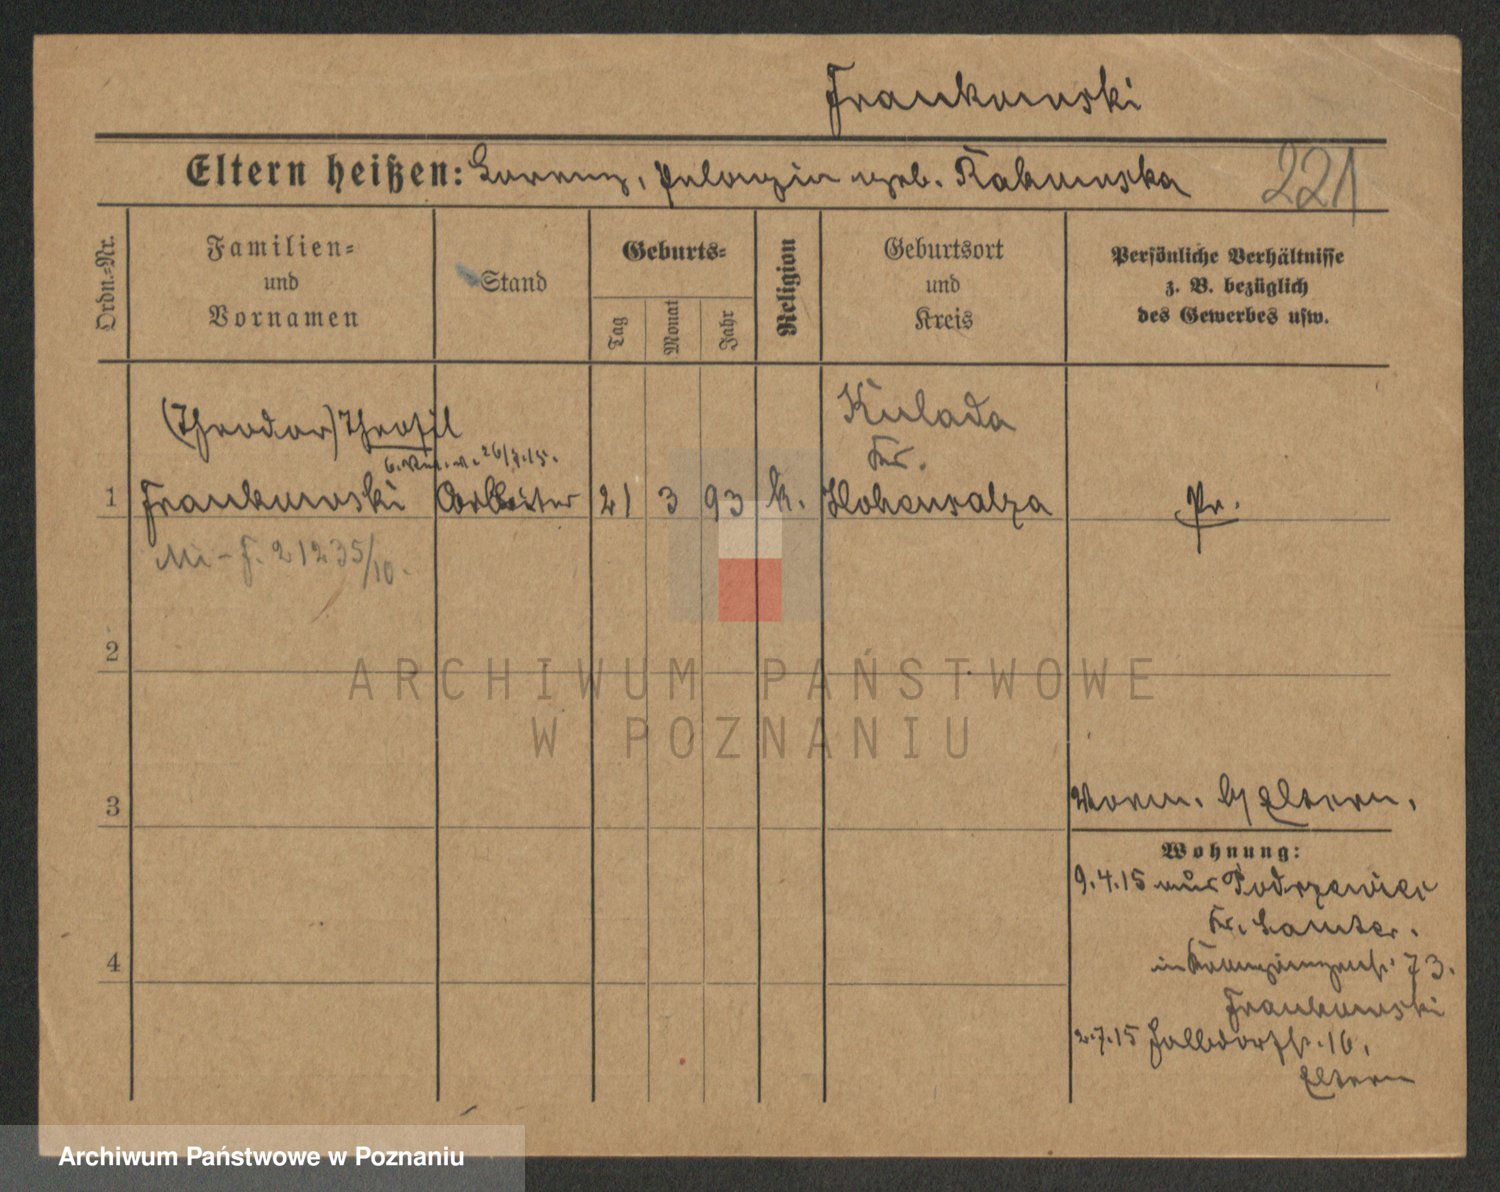 Frankowski
Eltern heißen: Lorenz, Pelagia geb. Rakowska 221
Ordn.-Nr.
Familien-
und
Vornamen
Stand
Geburts-
Tag
Monat
Jahr
Religion
Geburtsort
und
Kreis
Persönliche Verhältnisse
z. B. bezüglich
des Gewerbes usw.
(Theodor) Theofil
26/7.15.
1 Frankowski Arbeiter 21 3 93 k.
Kulada
Kr.
Hohensalza
Pr.
Mi - F. 21235/10.
2
ARCHIWUM PAŃSTWOWE
W POZNANIU
3
Vorm. b/ Eltern.
Wohnung:
9.4.15 aus Podrzewice
Kr. Samter.
in 73.
Frankowski
2.7.15 16.
Eltern
4
Archiwum Państwowe w Poznaniu